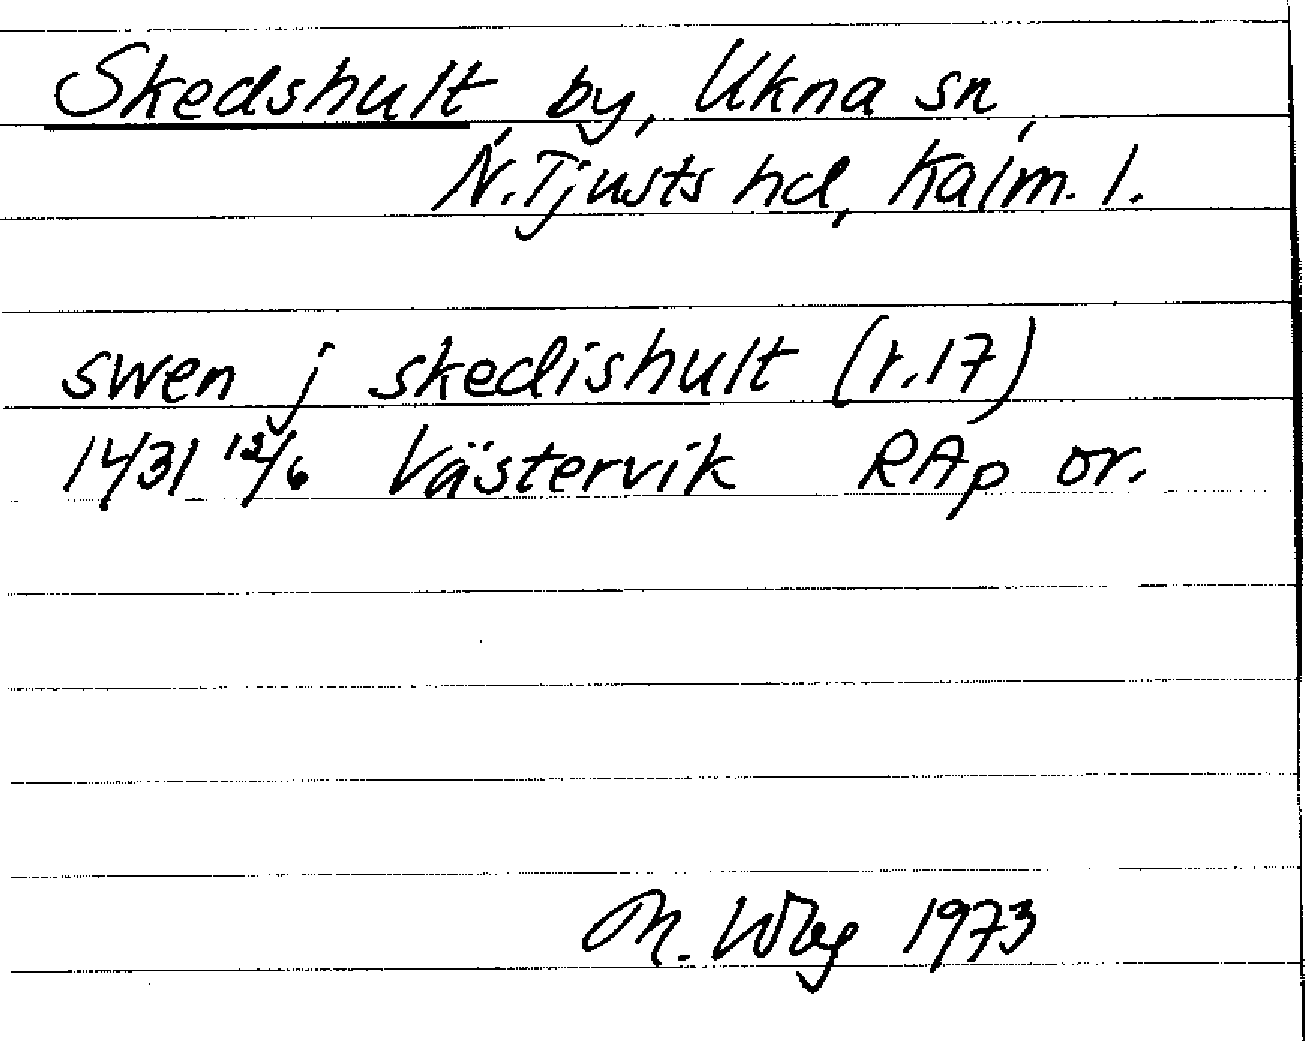 Skedshult by, Ukna sn,
N. Tjusts hd, Kalm. l.
swen j skedishult (r.17)
1431 12/6 Västervik RAp or.
M. Wbg 1973